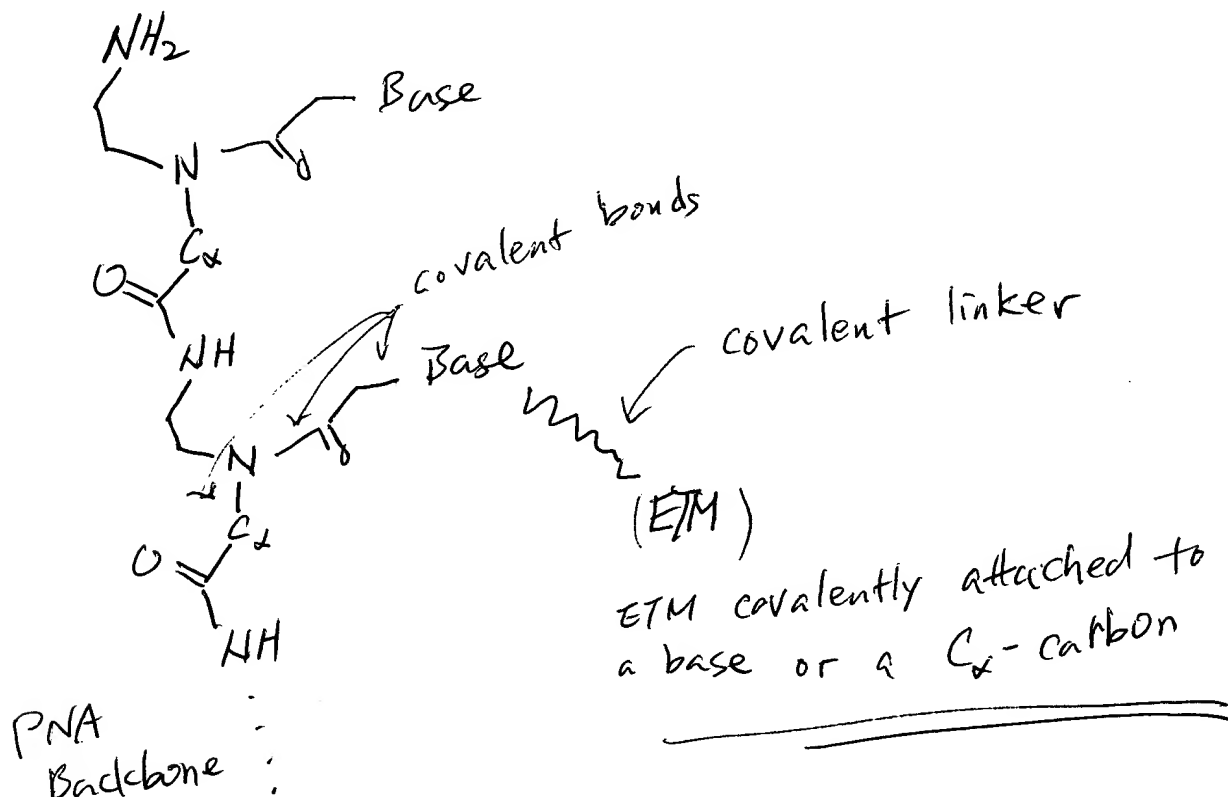 NH2
Base
N
O
Cα
O
covalent bonds
NH
Base
covalent linker
N
O
Cα
(ETM)
O
NH
ETM covalently attached to
a base or a Cα-carbon
PNA
Backbone